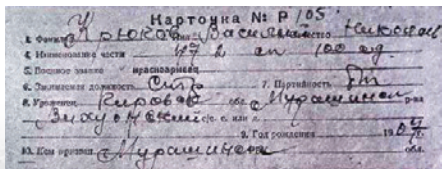 Карточка № Р/105
1. Фамилия Крюков Имя Василий Отчество Никонов
4. Наименование части 472 ап 100 ад
5. Военное звание красноармеец
6. Занимаемая должность 7. Партийность Бп
8. Уроженец Кировск обл. Мурашински р-на
с/с. с. или д.
9. Год рождения 1904 г.
10. Кем призван Мурашински обл.